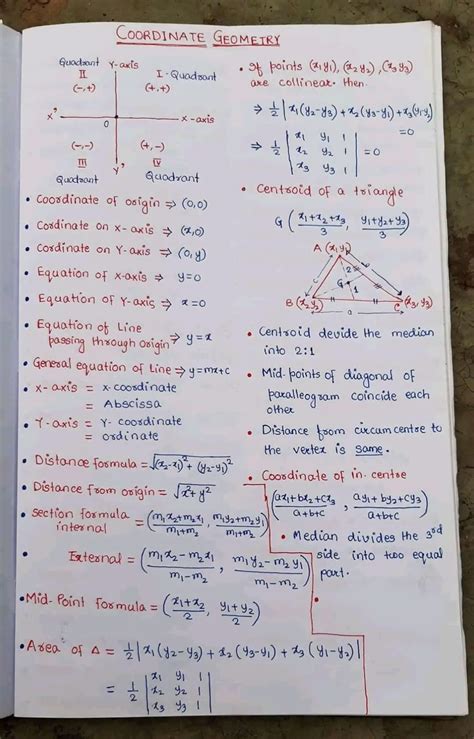 COORDINATE GEOMETRY
Quadrant Y-axis
II I-Quadrant
(-,+) (+,+)
X' O X-axis
(-,-) (+,-)
III Y' IV
Quadrant Quadrant
• Coordinate of origin ⇒ (0,0)
• Cordinate on X-axis ⇒ (x,0)
• Cordinate on Y-axis ⇒ (0,y)
• Equation of X-axis ⇒ y=0
• Equation of Y-axis ⇒ x=0
• Equation of Line
passing through origin ⇒ y=x
• General equation of Line ⇒ y=mx+c
• x-axis = x-coordinate
= Abscissa
• Y-axis = Y-coordinate
= ordinate
• Distance formula = √(x₂-x₁)² + (y₂-y₁)²
• Distance from origin = √x²+y²
• Section formula internal = (m₁x₂+m₂x₁/m₁+m₂, m₁y₂+m₂y₁/m₁+m₂)
• External = (m₁x₂-m₂x₁/m₁-m₂, m₁y₂-m₂y₁/m₁-m₂)
• Mid-Point formula = (x₁+x₂/2, y₁+y₂/2)
• Area of Δ = 1/2 |x₁(y₂-y₃) + x₂(y₃-y₁) + x₃(y₁-y₂)|
= 1/2 | x₁ y₁ 1 |
| x₂ y₂ 1 |
| x₃ y₃ 1 |
• If points (x₁y₁), (x₂y₂), (x₃y₃)
are collinear. then.
⇒ 1/2 |x₁(y₂-y₃) + x₂(y₃-y₁) + x₃(y₁-y₂)|
=0
⇒ 1/2 | x₁ y₁ 1 |
| x₂ y₂ 1 | =0
| x₃ y₃ 1 |
• Centroid of a triangle
G (x₁+x₂+x₃/3, y₁+y₂+y₃/3)
A (x₁y₁)
c 2 b
G 1
B (x₂y₂) C (x₃,y₃)
a
• Centroid devide the median
into 2:1
• Mid-points of diagonal of
paralleogram coincide each
other
• Distance from circumcentre to
the vertex is same.
• Coordinate of in. centre
(ax₁+bx₂+cx₃/a+b+c, ay₁+by₂+cy₃/a+b+c)
• Median divides the 3rd
side into two equal
part.